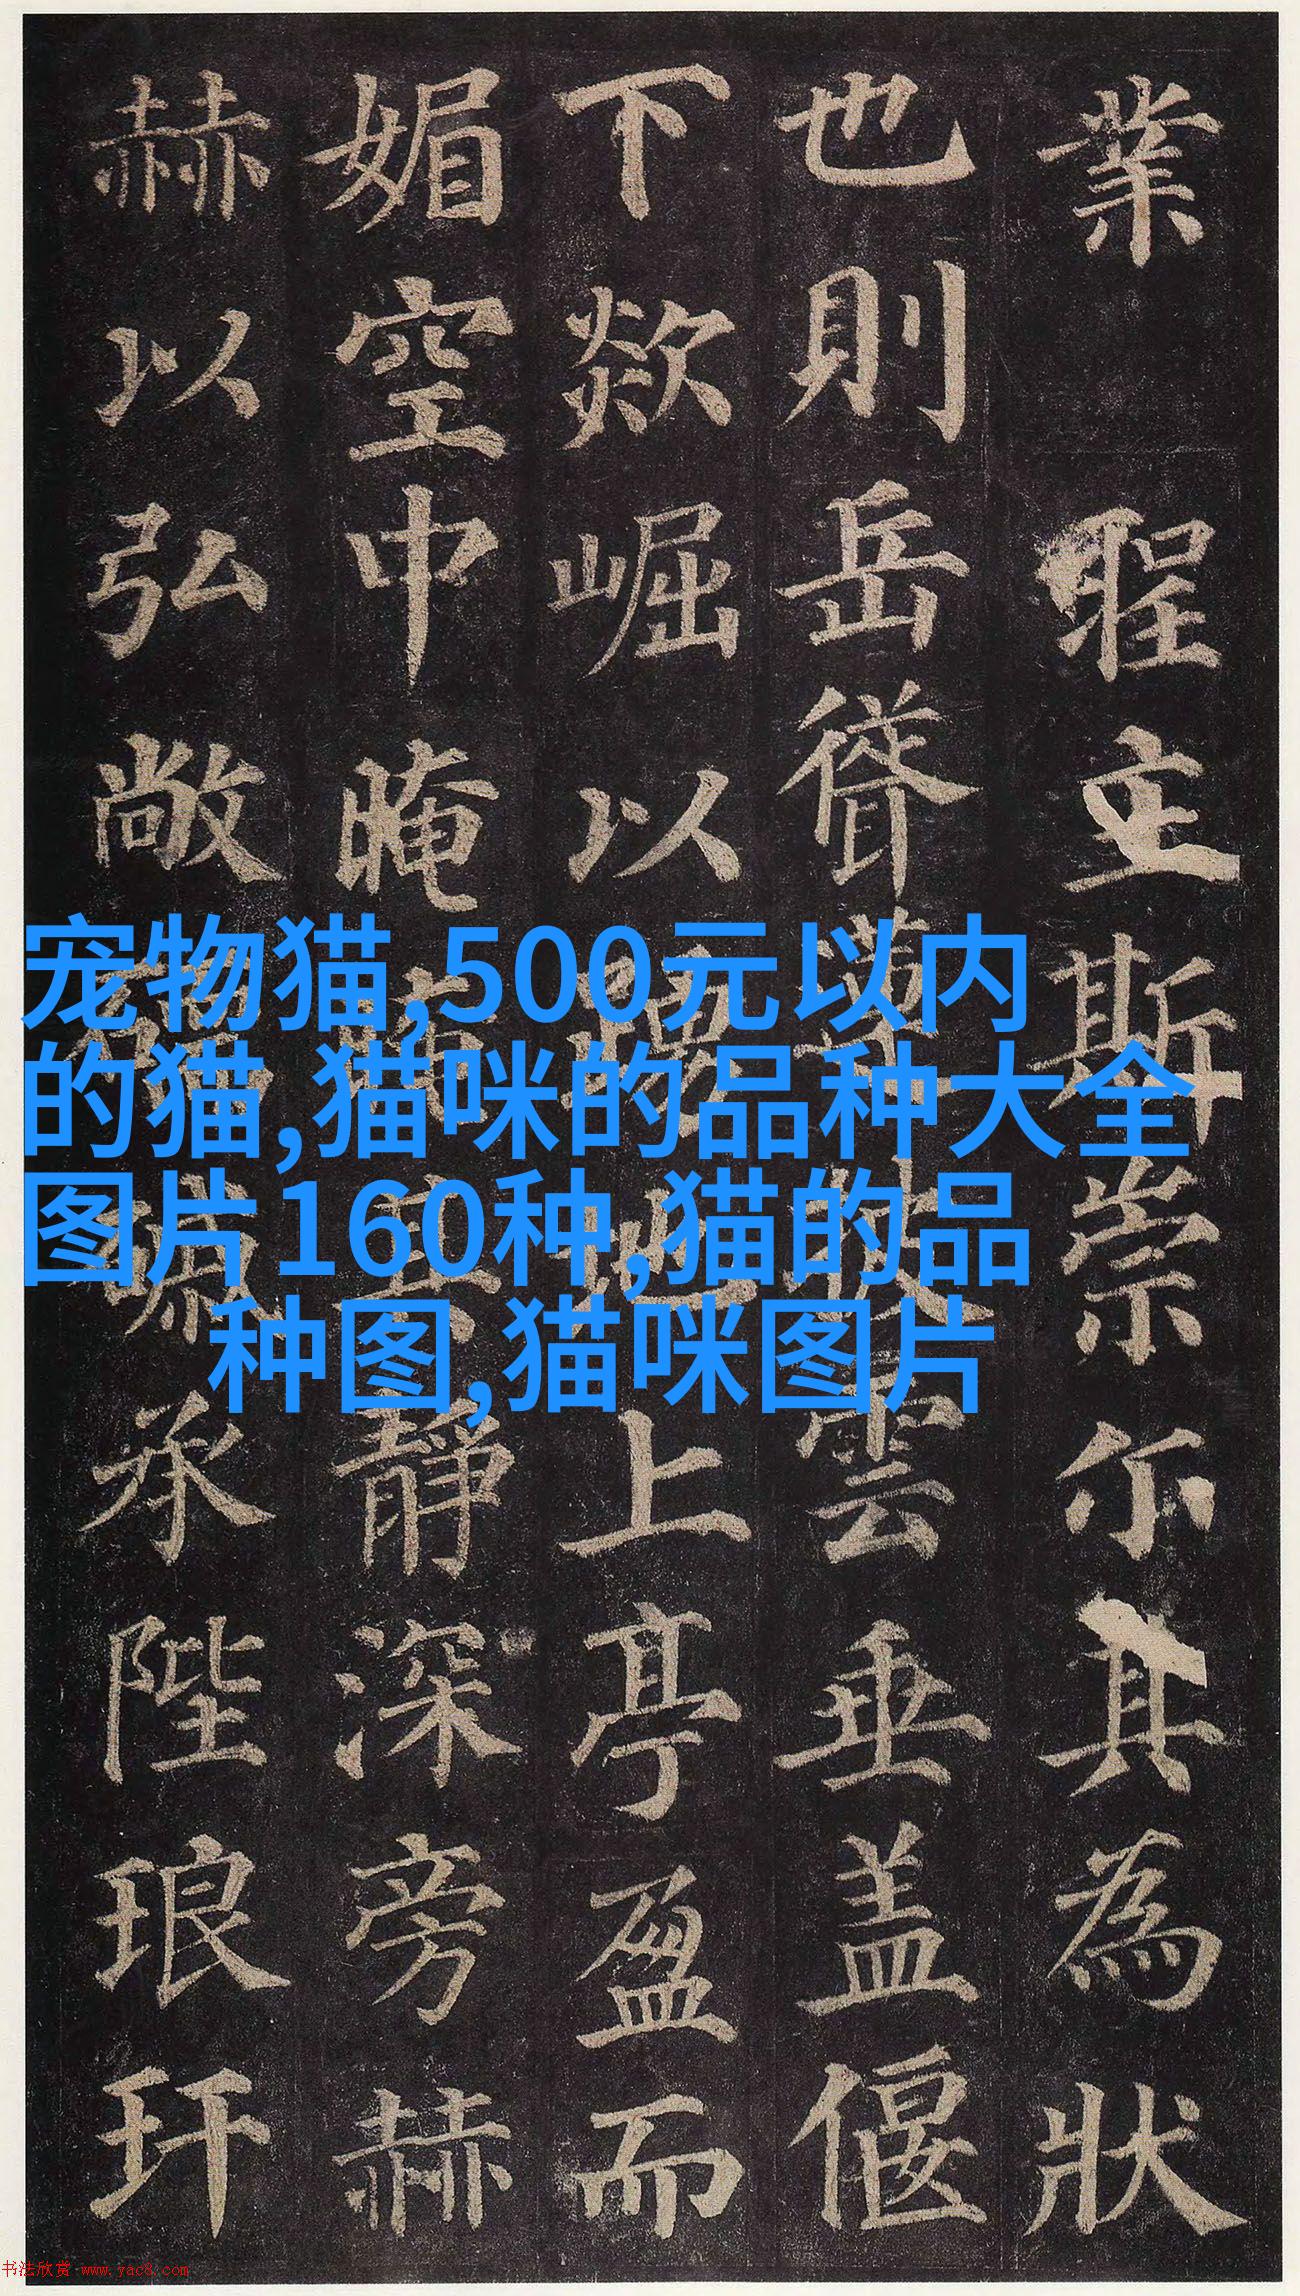 業聖立斯崇尔其為狀
也則岳聳雲垂盖偃
下欻崛以地上亭盈而
媚空中晻靜深旁赫
赫以弘敞承陛琅玕
宠物猫,500元以内
的猫,猫咪的品种大全
图片160种,猫的品
种图,猫咪图片
书法欣赏 www.yac8.com